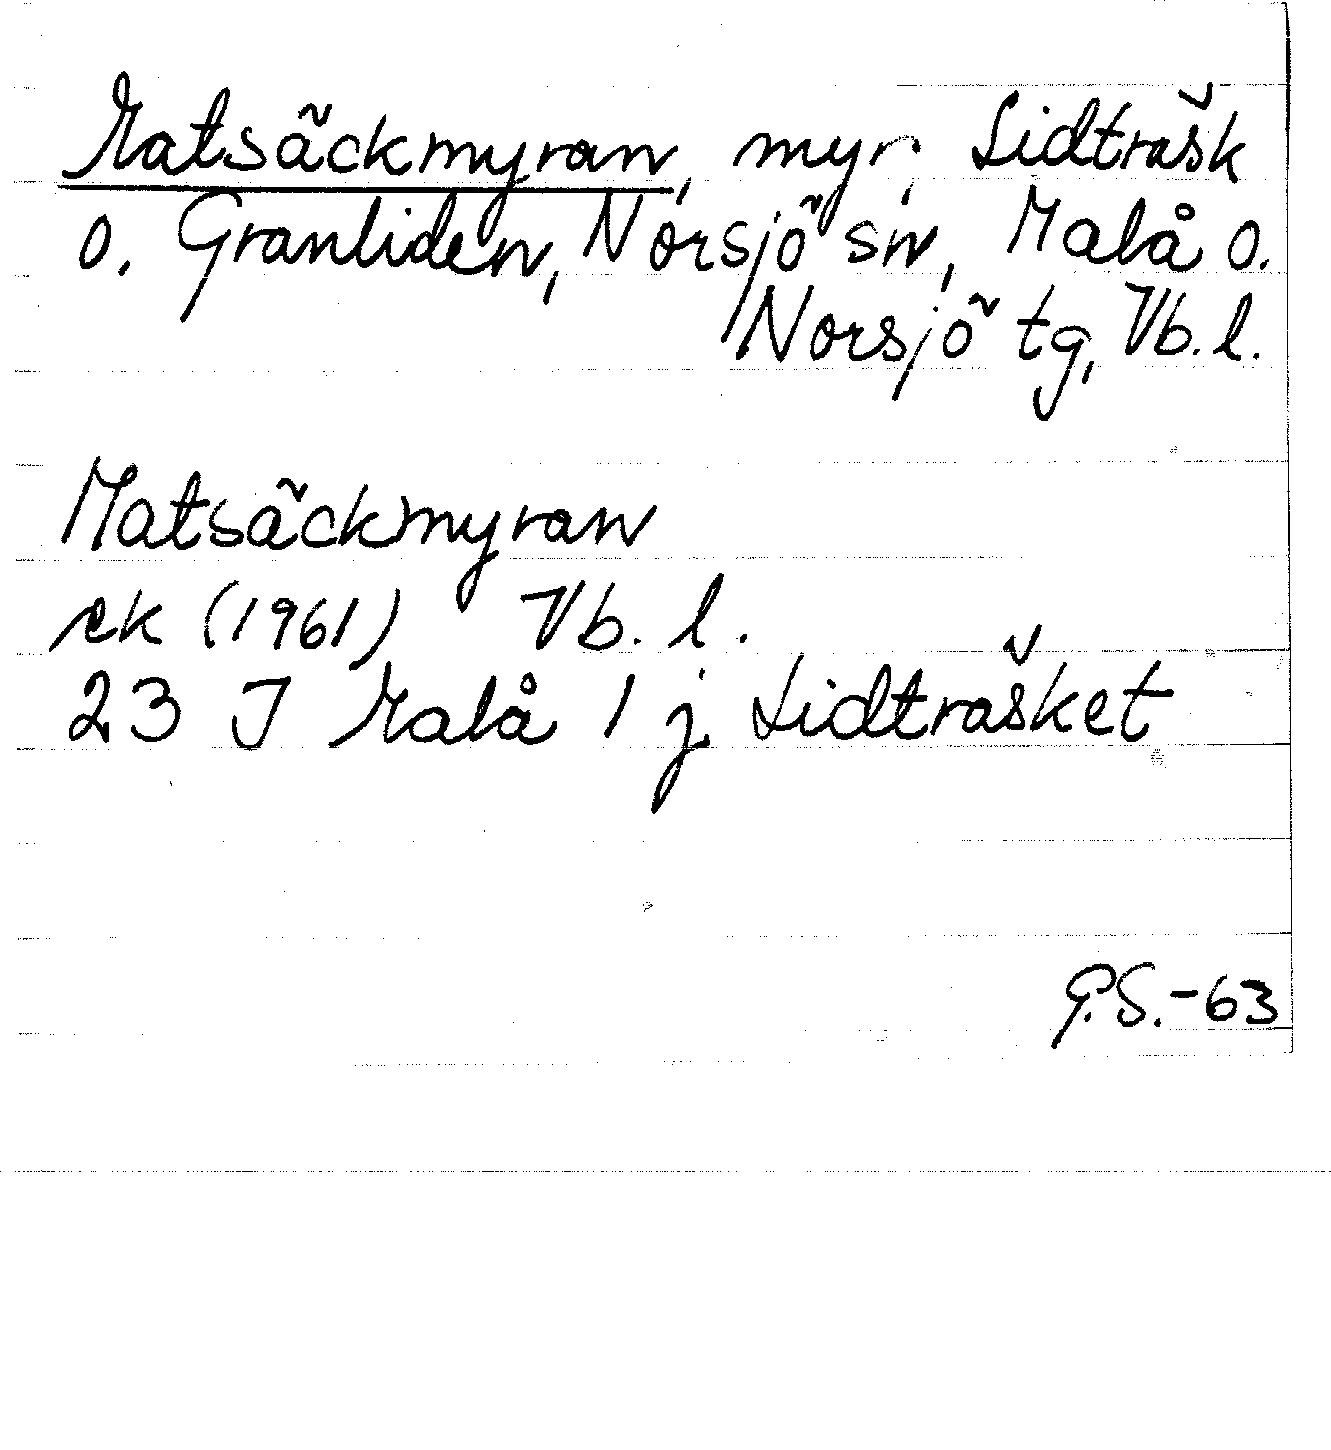 Matsäckmyran, myr, Lidträsk
o. Granliden, Norsjö sn, Malå o.
Norsjö tg, Vb. l.
Matsäckmyran
ek (1961) Vb. l.
23 J Malå 1 j Lidträsket
G.S.-63